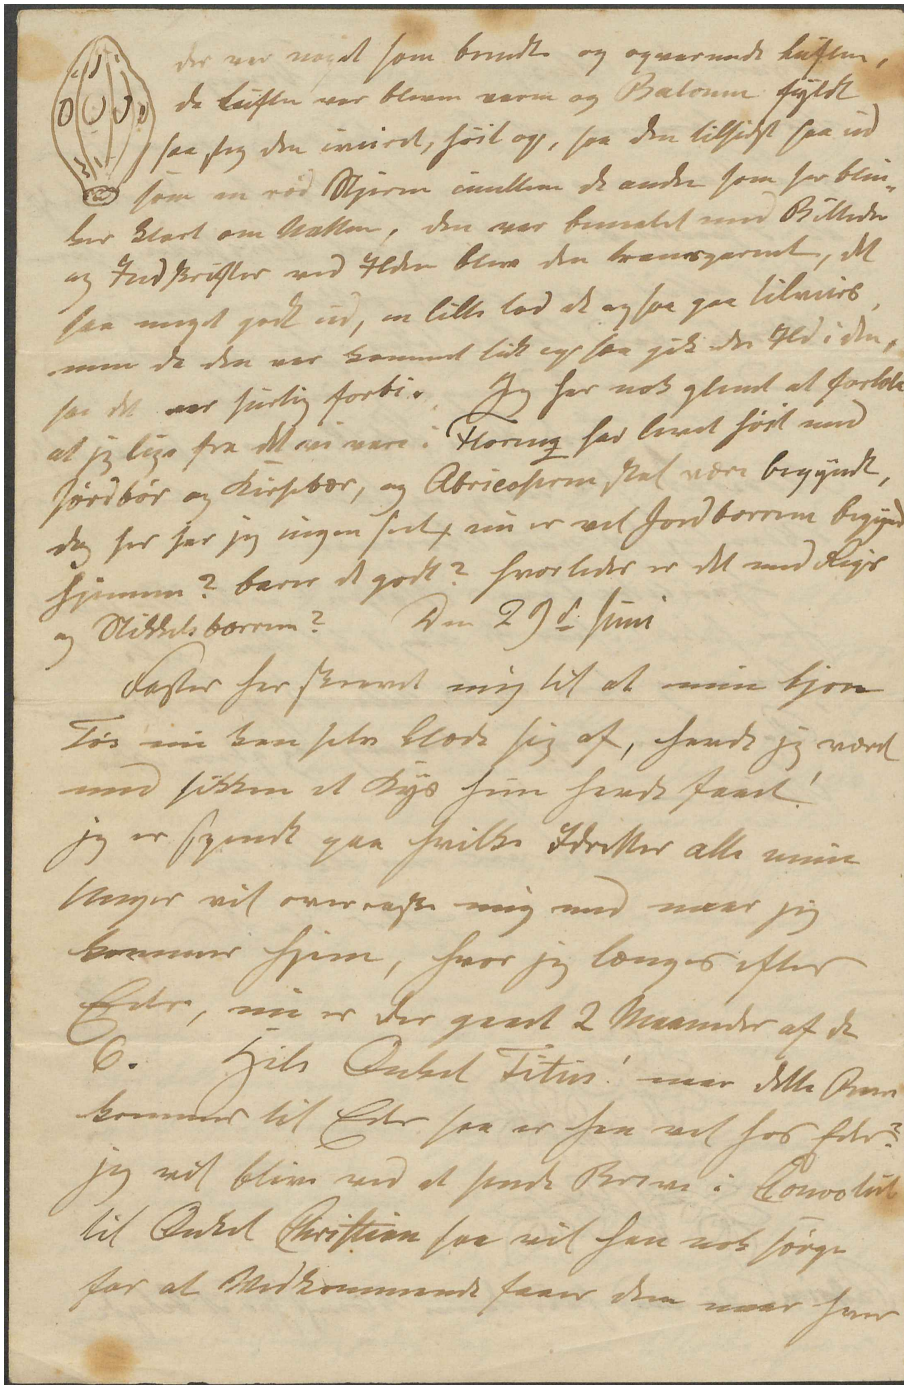 der var noget som brendte og opvarmede Luften,
da Luften var bleven varm og Balonen fyldt
saa steg den iveiret, høit op, saa den tilsidst saa ud
som en rød Stjerne imellem de andre som her blin-
ker klart om Natten, den var bemalet med Billeder
og Indskrifter ved Ilden blev den transparent, det
saa meget godt ud, en lille lod de ogsaa gaa tilveirs,
men da den var kommet lidt op saa gik der Ild i den,
saa det var hurtig forbi. Jeg har nok glemt at fortælle
at jeg lige fra det vi vare i Florenz har levet høit med
Jordbær og Kirsebær, og Abricoserne skal være begyndt,
dog her har jeg ingen seet, nu er vel Jordbærrene begyndt
hjemme? bærer de godt? hvorledes er det med Ribs
og Stikkelsbærrene? Den 29 de Juni
Faster har skrevet mig til at min kjære
Tøs nu kan selv klæde sig af, havde jeg været
med sikken et Kys hun havde faaet!
jeg er spendt paa hvilke Idretter alle mine
Unger vil overraske mig med naar jeg
kommer hjem, hvor jeg længes efter
Eder, nu er der gaaet 2 Maaneder af de
6. Hils Onkel Titus! naar dette Brev
kommer til Eder saa er han vel hos Eder?
jeg vil blive ved at sende Breve i Convolut
til Onkel Christian saa vil han nok sørge
for at Vedkommende faaer dem naar hver